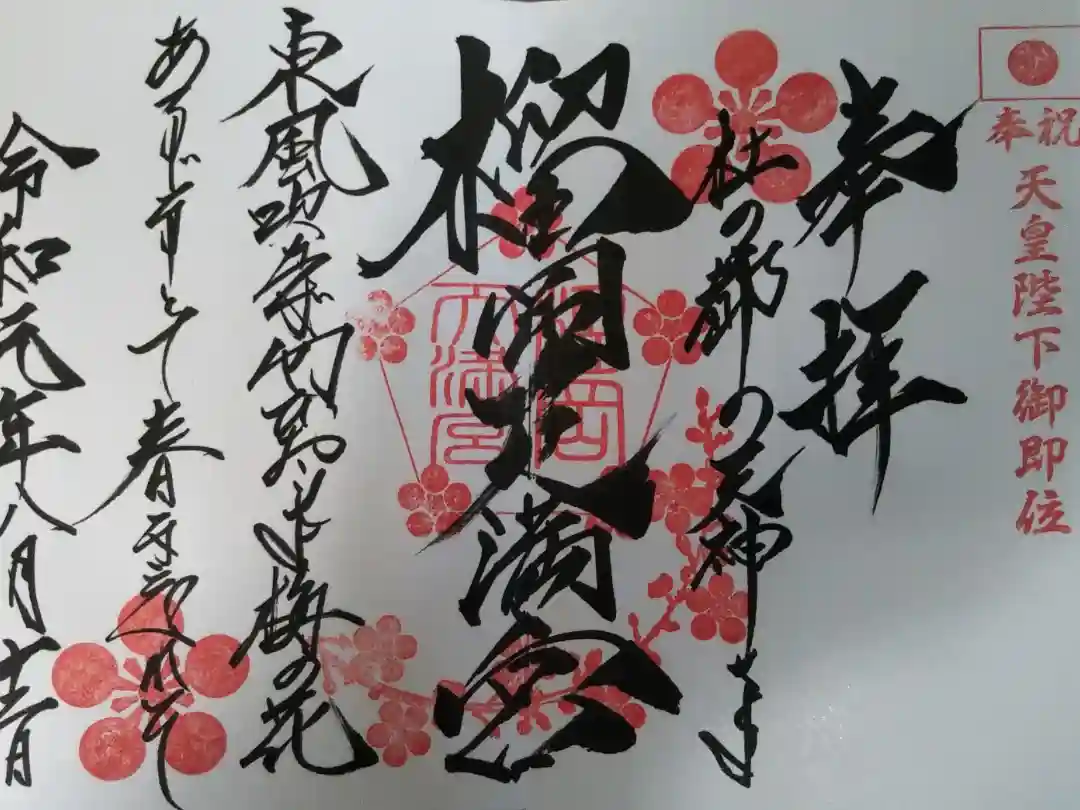 奉祝
天皇陛下御即位
奉拝
杜の都の天神さま
榴岡天満宮
榴岡
天満宮
東風吹かば匂ひおこせよ梅の花
あるじなしとて春な忘れそ
令和元年八月